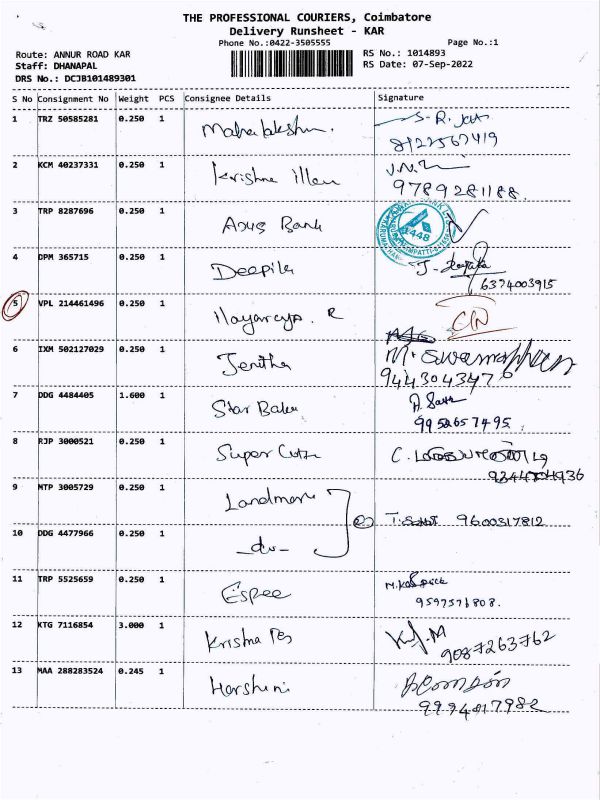 THE PROFESSIONAL COURIERS, Coimbatore
Delivery Runsheet - KAR
Phone No.:0422-3505555 Page No.:1
Route: ANNUR ROAD KAR RS No.: 1014893
Staff: DHANAPAL RS Date: 07-Sep-2022
DRS No.: DCJB101489301
S No Consignment No Weight PCS Consignee Details Signature
1 TRZ 50585281 0.250 1
8122567419
2 KCM 40237331 0.250 1 Krishna illam
9789281188
3 TRP 8287696 0.250 1 Axis Bank
4 DPM 365715 0.250 1 Deepika
6374003915
5 VPL 214461496 0.250 1
6 IXM 502127029 0.250 1 Jenitha
9443043476
7 DDG 4484405 1.600 1 Star Bake
9952657495
8 RJP 3000521 0.250 1
9 MTP 3005729 0.250 1 Landmark
9600317812
10 DDG 4477966 0.250 1 -do-
11 TRP 5525659 0.250 1 Espee
9597576808.
12 KTG 7116854 3.000 1 Krishna
9087263762
13 MAA 288283524 0.245 1 Harshini
9994817982